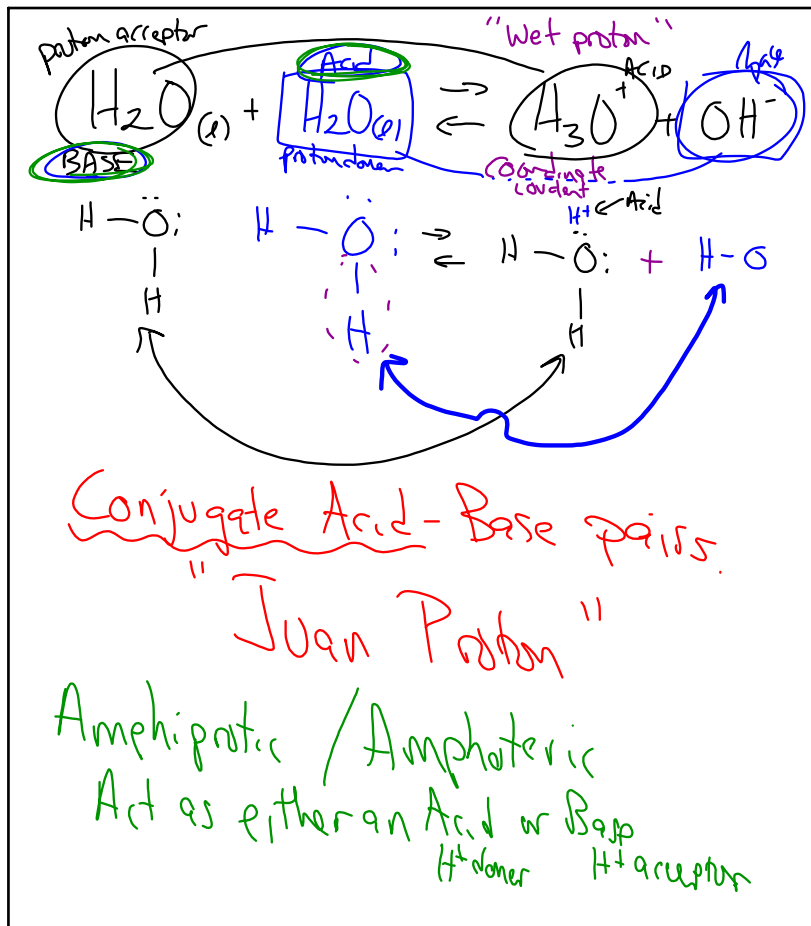 proton acceptor "Wet proton"
Acid ACID
H₂O(l) + H₂O(l) ⇌ H₃O⁺ + OH⁻
BASE proton doner coordinate
covalent
H⁺ ← Acid
H – O: H – O: ⇌ H – O: + H – O
H H H
Conjugate Acid - Base pairs.
"Juan Proton"
Amphiprotic / Amphoteric
Act as either an Acid or Base
H⁺ doner H⁺ acceptor